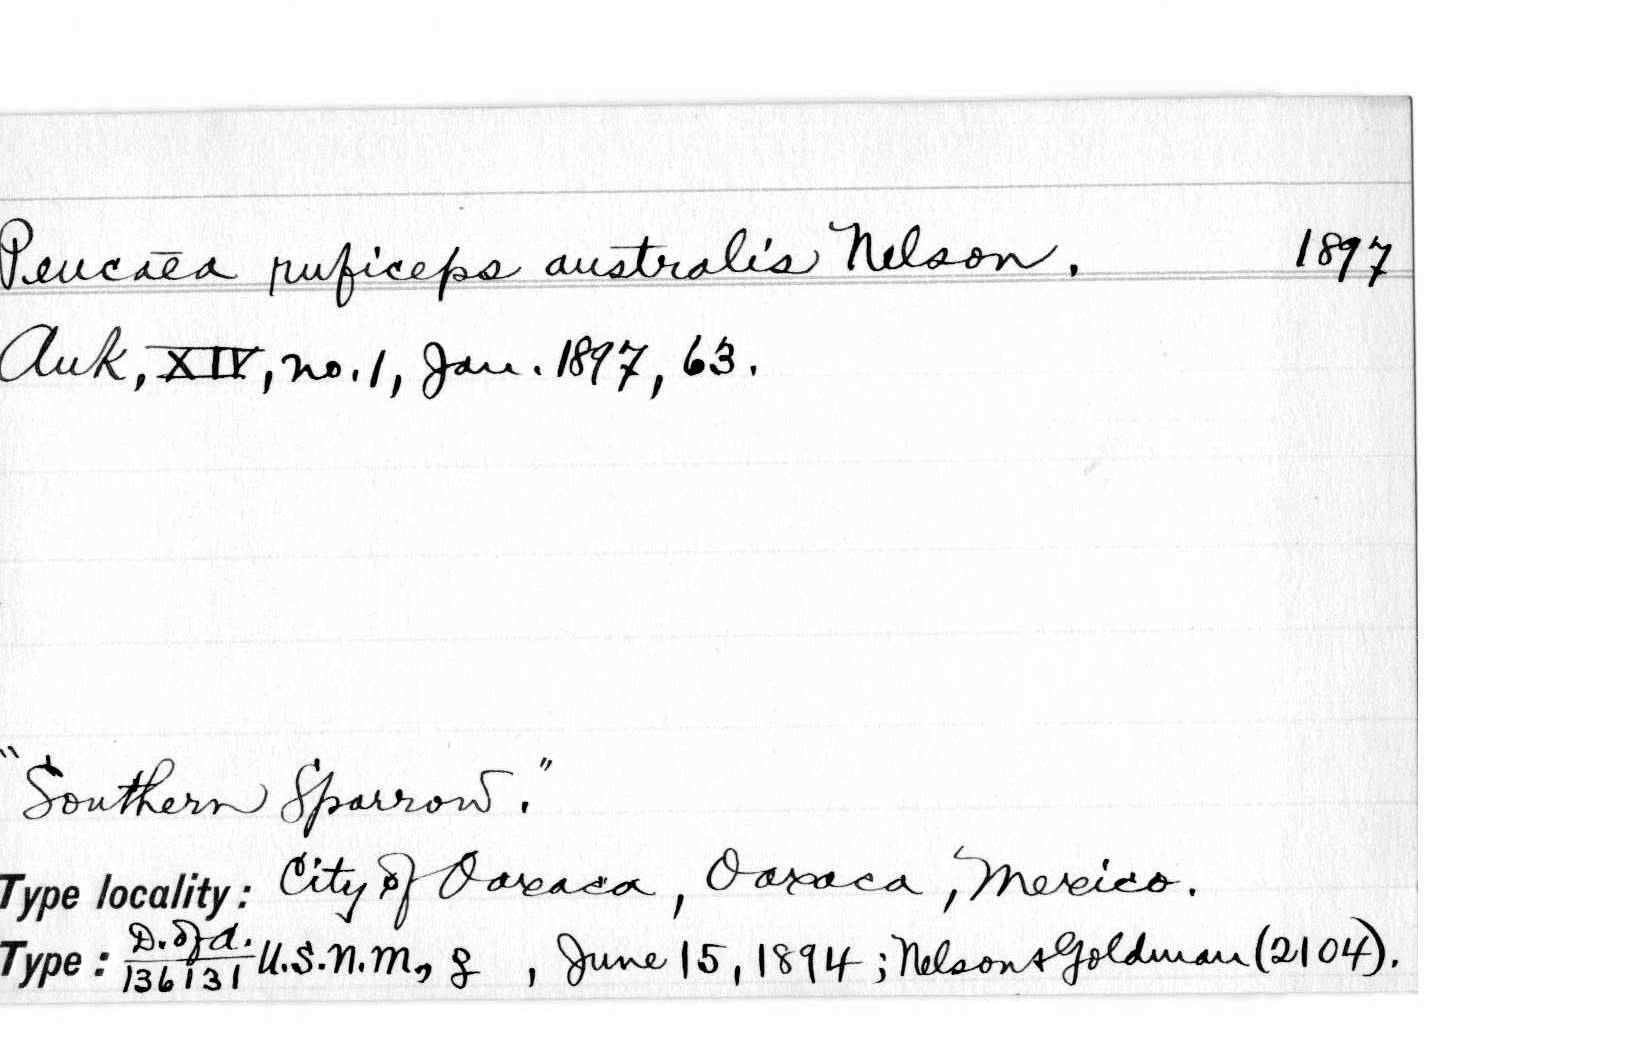 Peucaea ruficeps australis Nelson. 1897
Auk, XIV, no. 1, Jan. 1897, 63.
"Southern Sparrow."
Type locality: City of Oaxaca, Oaxaca, Mexico.
Type: D. of A. / 136131 U.S.N.M., , June 15, 1894; Nelson & Goldman (2104).